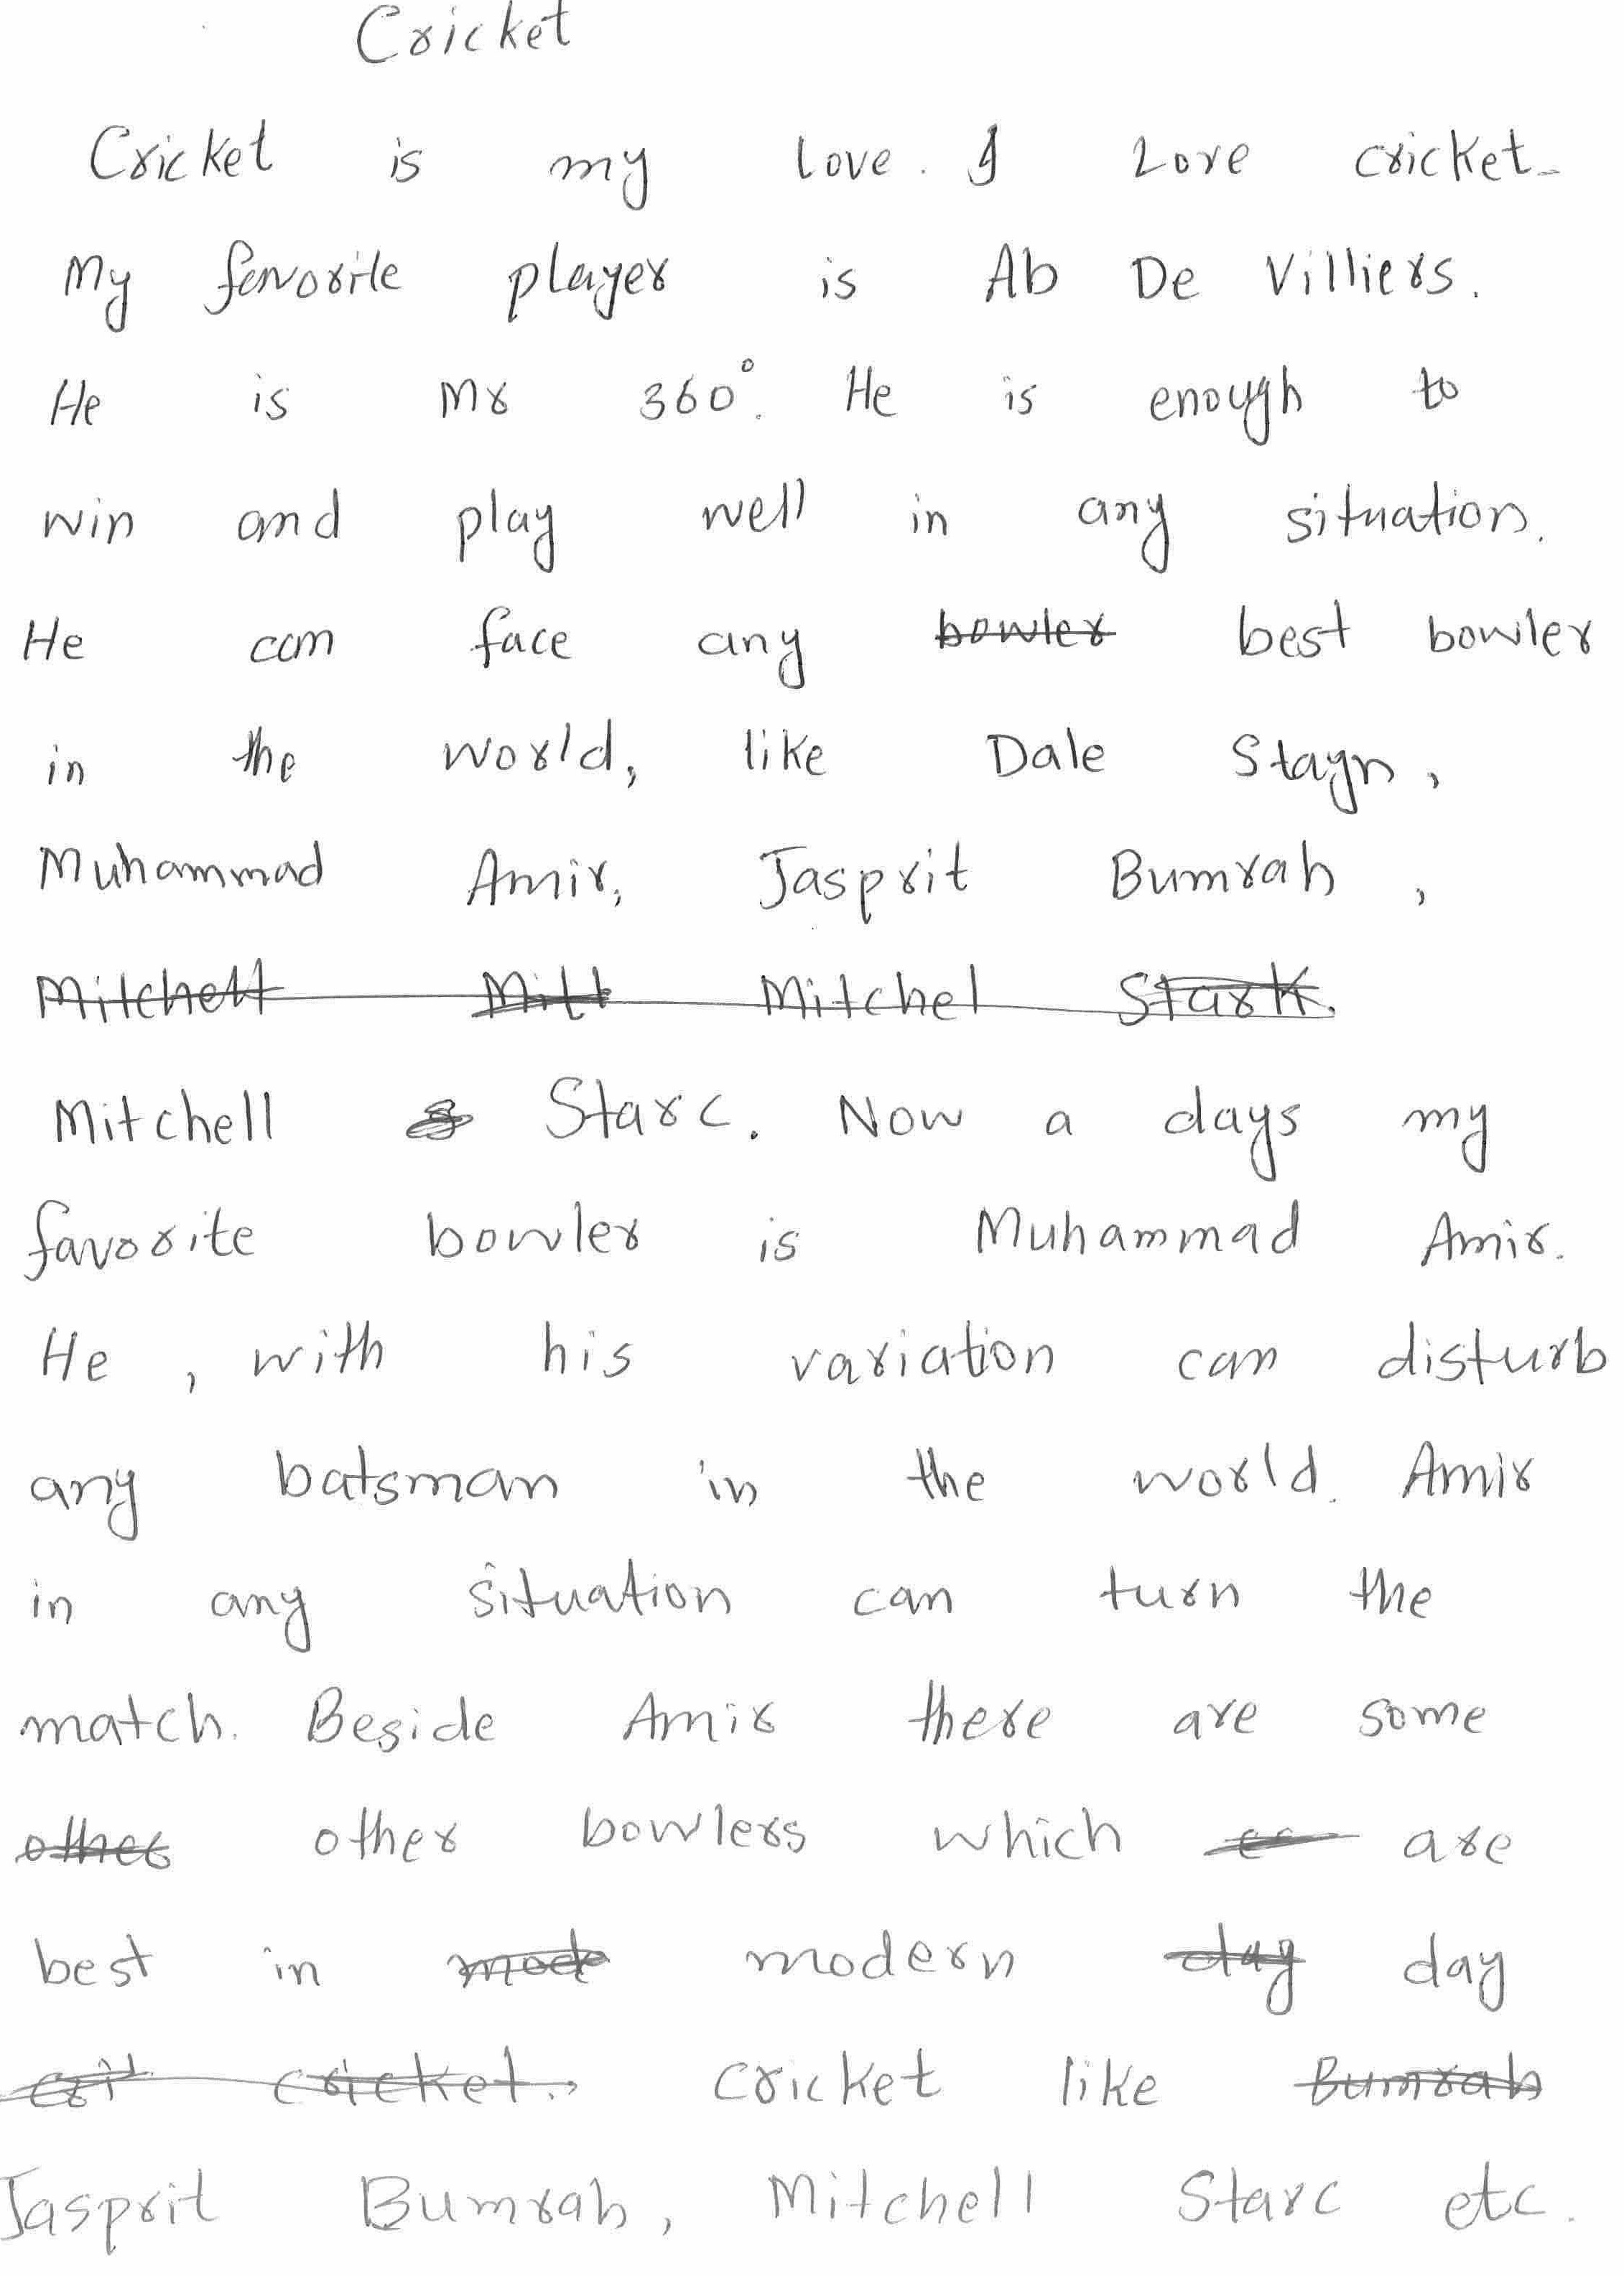 Cricket
Cricket is my love. I Love cricket.
My favorite player is Ab De Villiers.
He is Mr 360°. He is enough to
win and play well in any situation.
He can face any bowler best bowler
in the world, like Dale Stayn,
Muhammad Amir, Jasprit Bumrah,
Mitchell Mitt Mitchel Stark.
Mitchell Starc. Now a days my
favorite bowler is Muhammad Amir.
He, with his variation can disturb
any batsman in the world. Amir
in any situation can turn the
match. Beside Amir there are some
other other bowlers which are
best in mode modern day day
cri cricket. cricket like Bumrah
Jasprit Bumrah, Mitchell Starc etc.